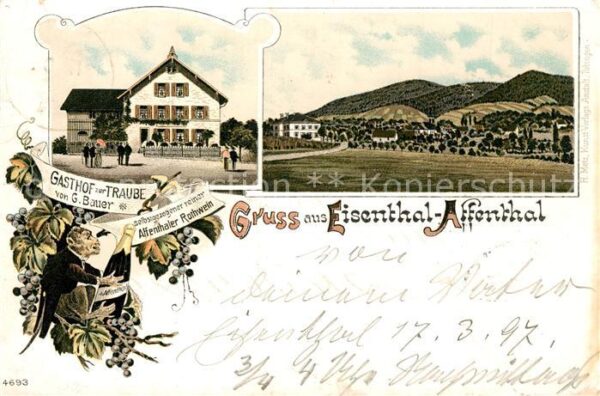 GASTHOF zur TRAUBE
von G. Bauer
selbstgezogener reiner
Affenthaler Rothwein
Gruss aus Eisenthal-Affenthal
von
deinem Vater
Eisenthal 17. 3. 97.
3/4 4 Uhr Nachmittag
4693